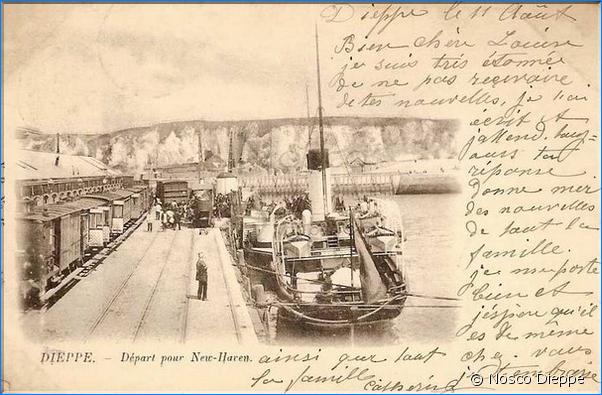 Dieppe le 11 Août
Bien chère Louise
je suis très étonnée
de ne pas reçevoire
de tes nouvelles, je t'ai
écrit et
j'attend touj-
ours ta
réponse
Donne mer
des nouvelles
de tout la
famille.
je me porte
bien et
j'éspère qu'il
es de même
chez vous
ainsi que tout
ta famille
je t'embrasse
Catherine
DIEPPE. - Départ pour New-Haven.
© Nosco Dieppe